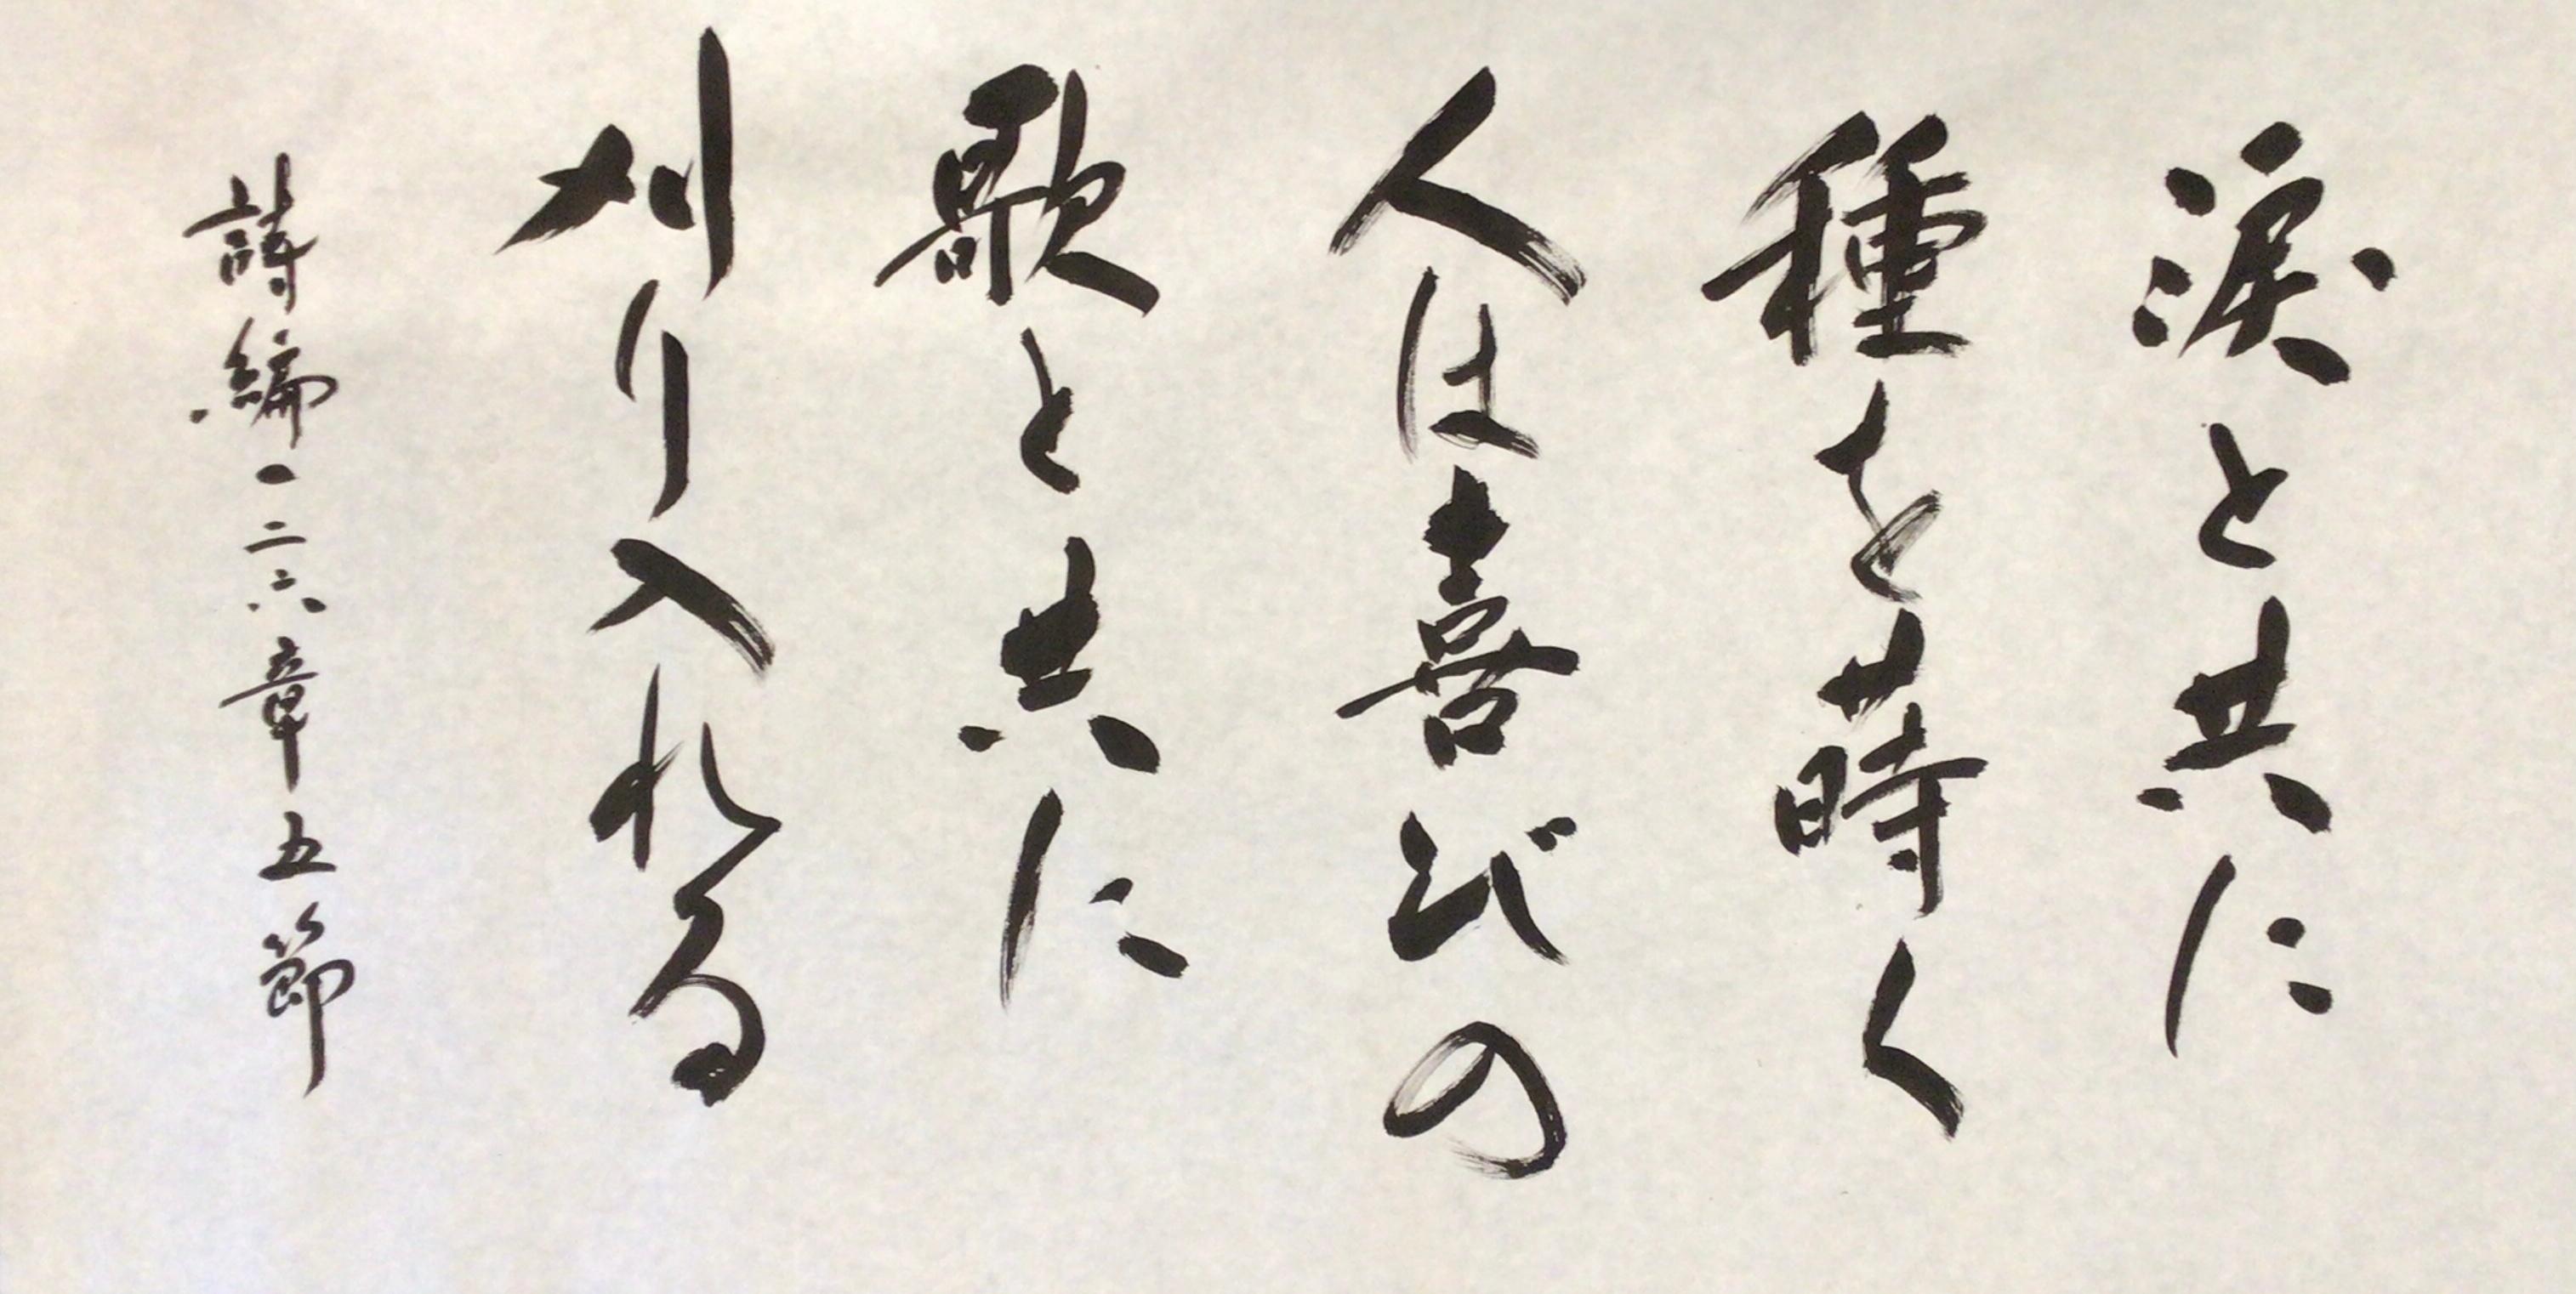 涙と共に
種を蒔く
人は喜びの
歌と共に
刈り入れる
詩編一二六章五節